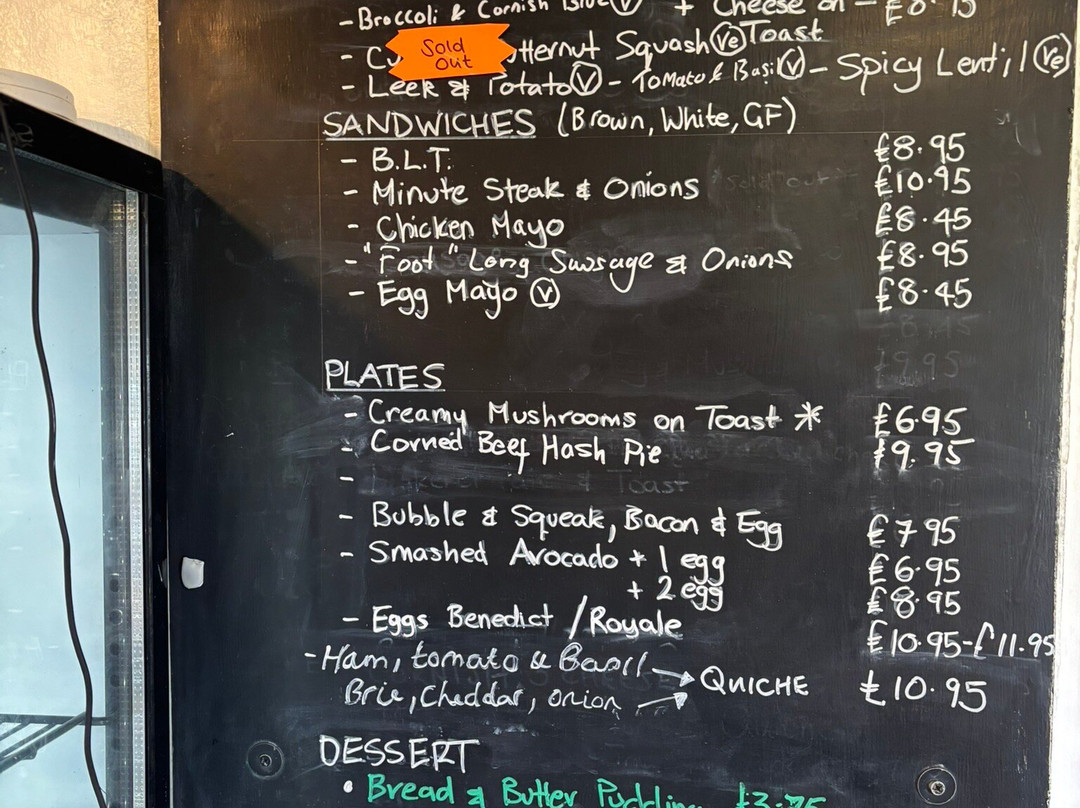 - Broccoli & Cornish Blue Ⓥ + Cheese on - £8.95
Sold Out
Squash Ⓥe Toast
- Leek & Potato Ⓥ - Tomato & Basil Ⓥ - Spicy Lentil Ⓥe
SANDWICHES (Brown, White, GF)
- B.L.T. £8.95
- Minute Steak & Onions £10.95
- Chicken Mayo £8.45
- "Foot" Long Sausage & Onions £8.95
- Egg Mayo Ⓥ £8.45
PLATES
- Creamy Mushrooms on Toast * £6.95
- Corned Beef Hash Pie £9.95
- & Toast
- Bubble & Squeak, Bacon & Egg £7.95
- Smashed Avocado + 1 egg £6.95
+ 2 egg £8.95
- Eggs Benedict / Royale £10.95-£11.95
- Ham, tomato & Basil → QUICHE £10.95
Brie, Cheddar, onion →
DESSERT
• Bread & Butter Pudding £3.75